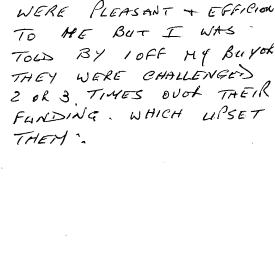 WERE PLEASANT + EFFICIEN
TO ME BUT I WAS
TOLD BY 1 OFF MY BUYOR
THEY WERE CHALLENGED
2 OR 3 TIMES OVOR THEIR
FUNDING. WHICH UPSET
THEM.